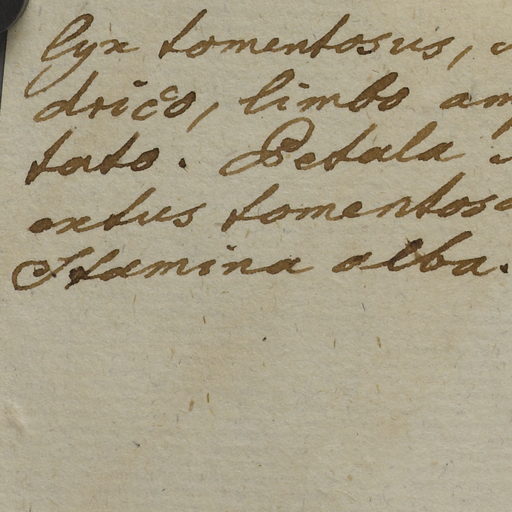 lyx tomentosus,
drico, limbo am
tato. Petala
extus tomentosa
Stamina alba.